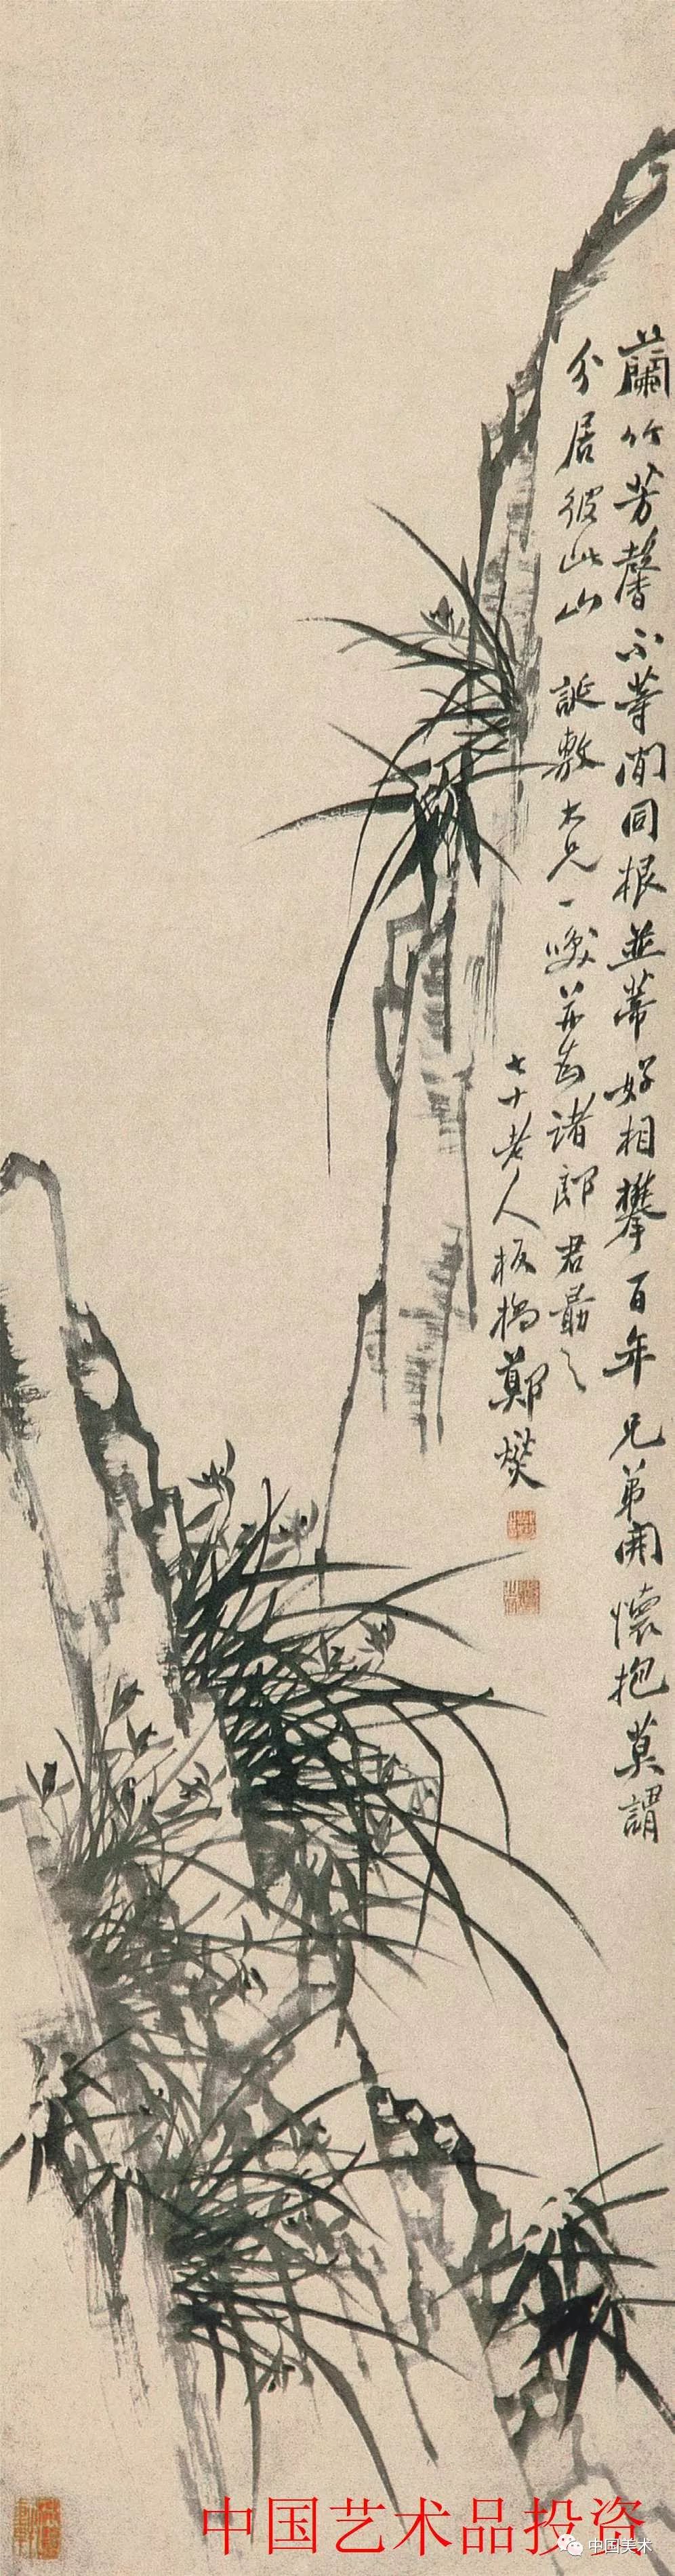 蘭竹芳馨不等閒同根並蒂好相攀百年兄弟開懷抱莫謂
分居彼此山 誕敷大兄一噱并爲諸郎君勗之
七十老人板橋鄭燮
中国艺术品投资
中国美术